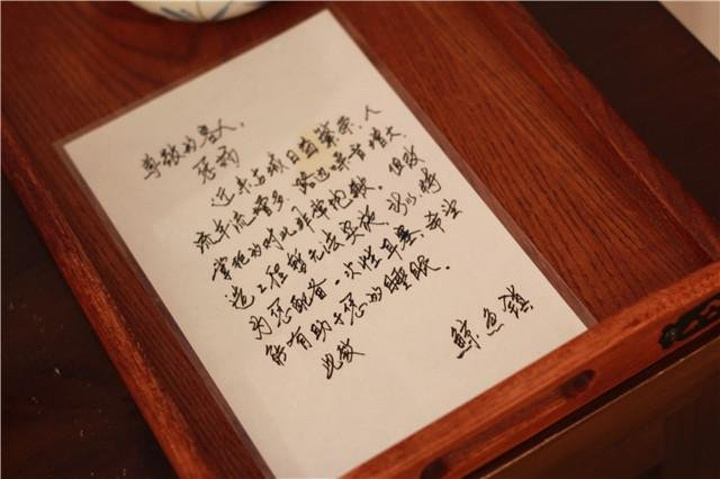 尊敬的客人,
您好
近来古城日益繁荣,人
流车流增多,路边噪音增大,
掌柜为对此非常抱歉。但改
造工程暂无法实施,所以特
为您配备一次性耳塞,希望
能有助于您的睡眠。
此致
鲸鱼镇